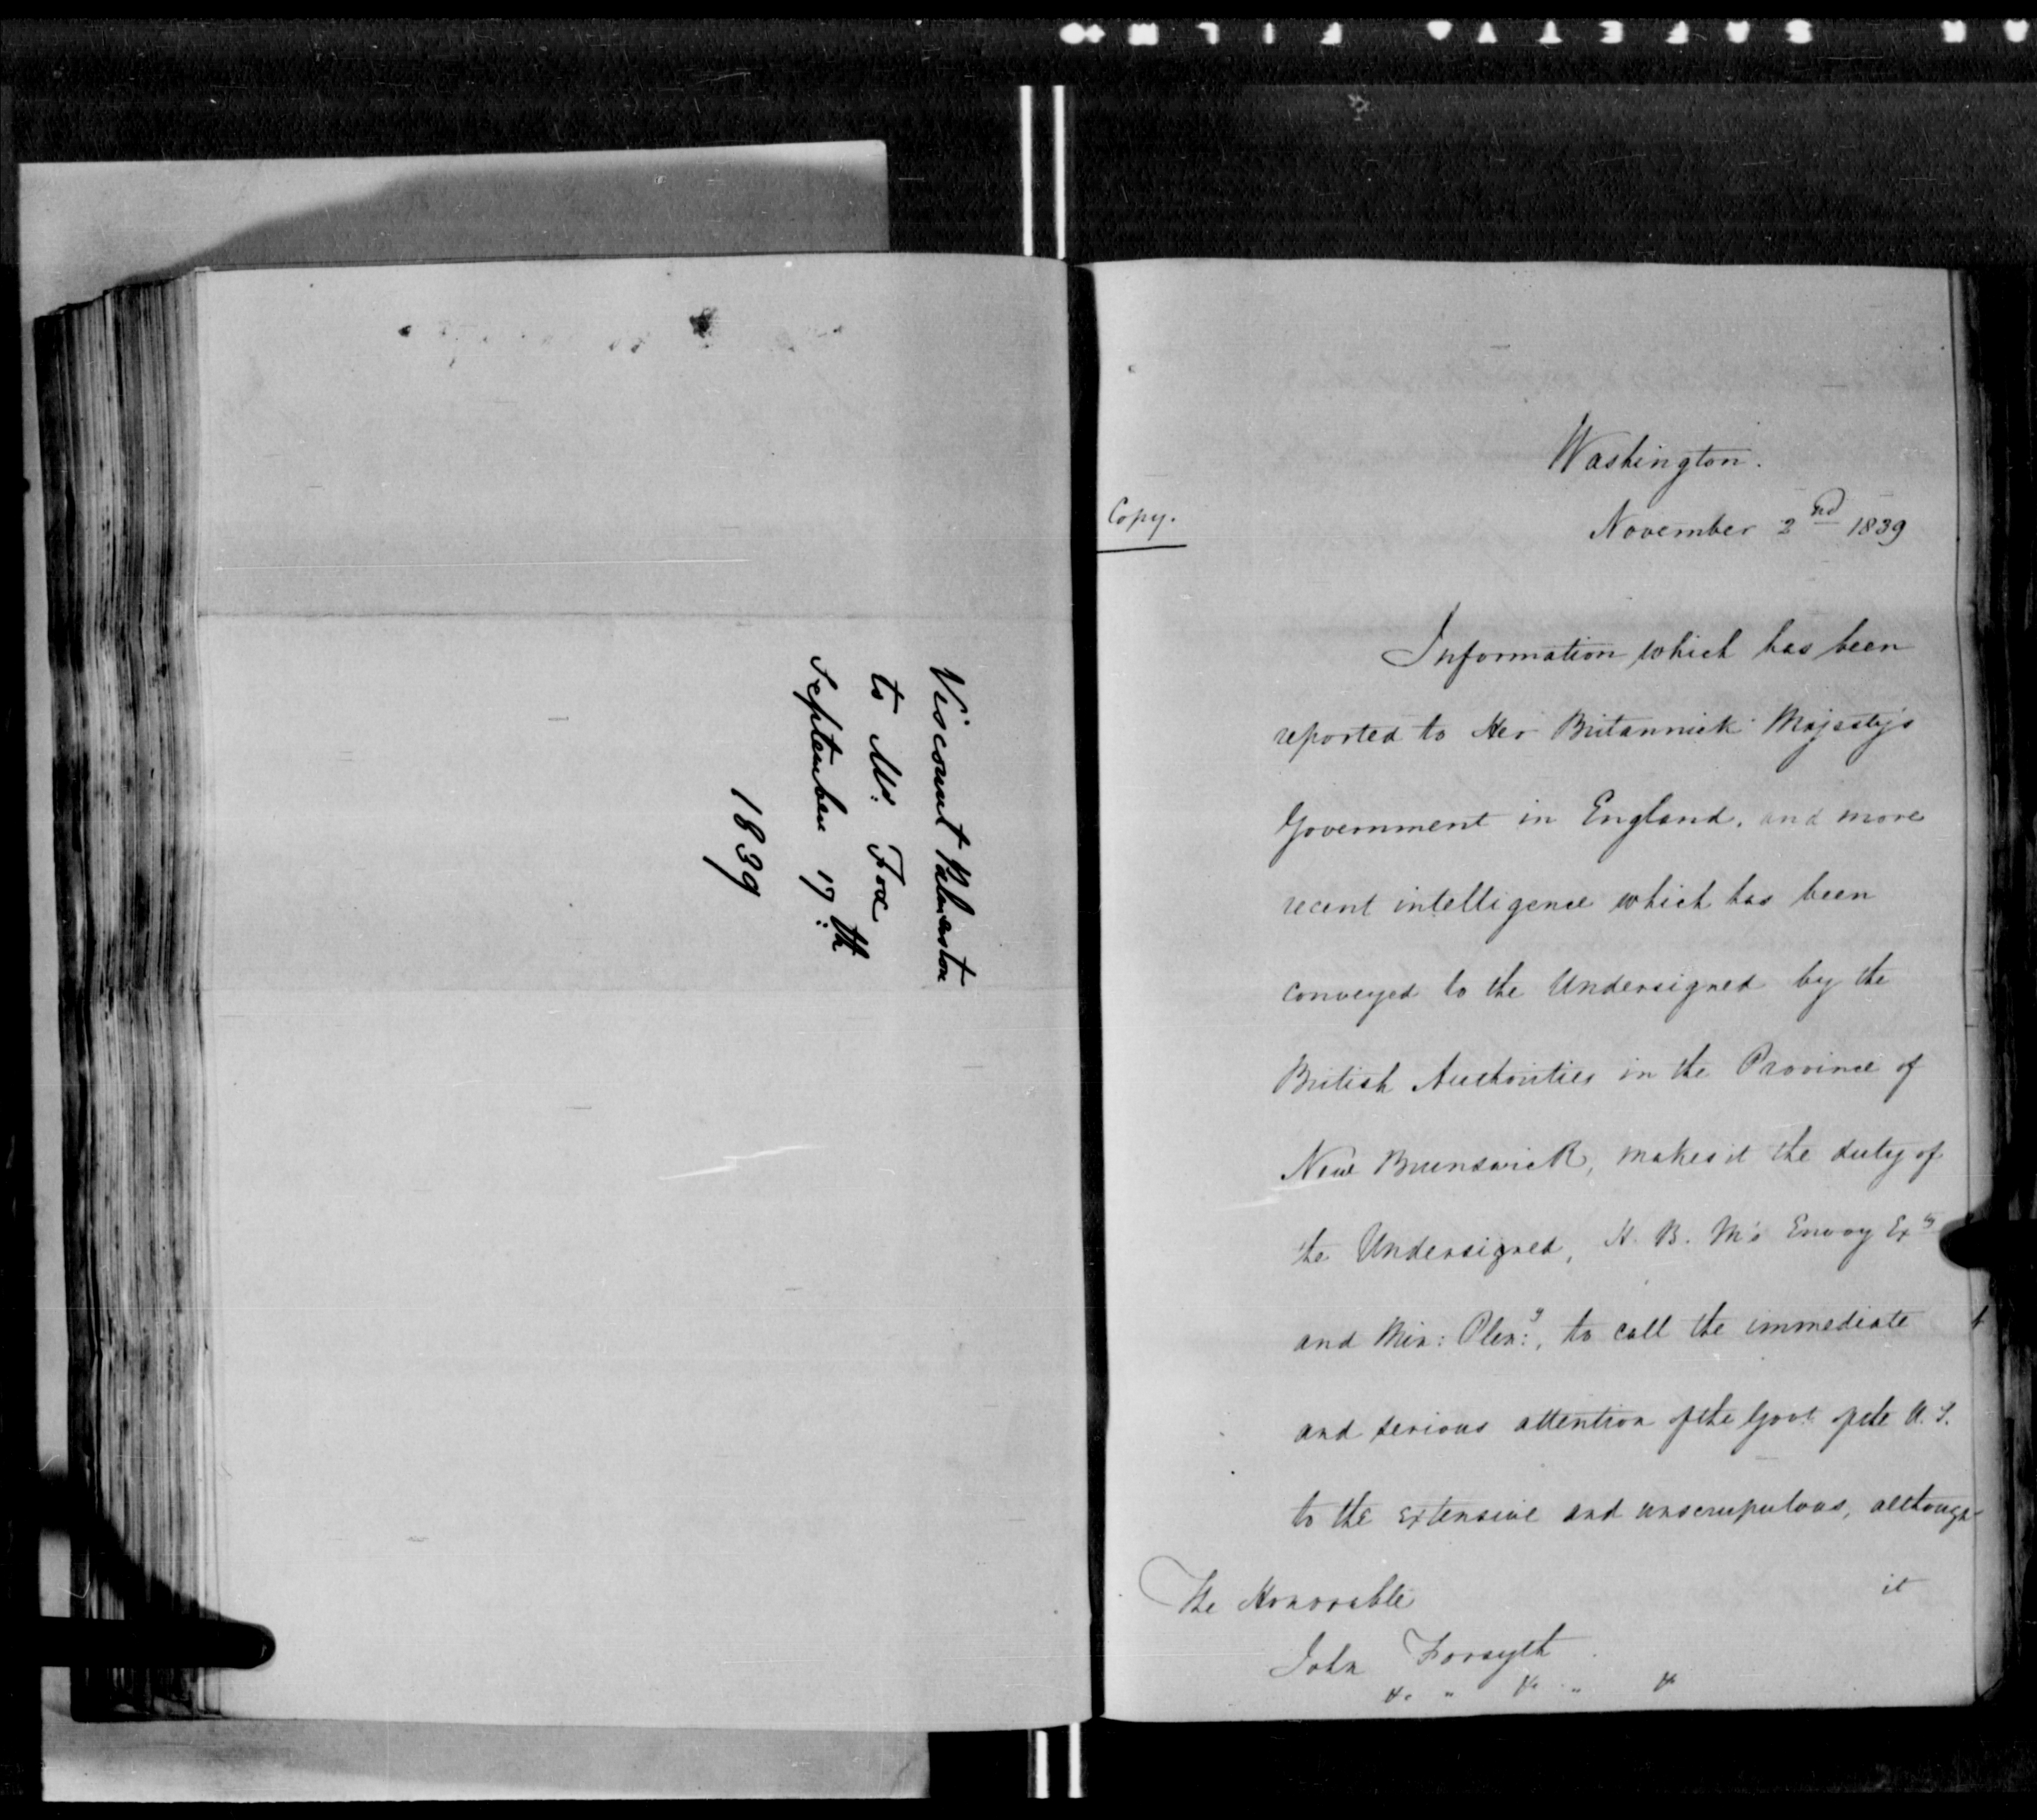 Viscount Palmerston
to Mr. Fox
September 17th
1839
Washington.
Copy.
November 2nd 1839
Information which has been
reported to Her Britannick Majesty's
Government in England, and more
recent intelligence which has been
conveyed to the Undersigned by the
British Authorities in the Province of
New Brunswick, makes it the duty of
the Undersigned, H. B. M's Envoy Exy
and Min: Plen:y, to call the immediate
and serious attention of the Govt of the U. S.
to the extensive and unscrupulous, although
it
The Honorable
John Forsyth
&c " &c " &c